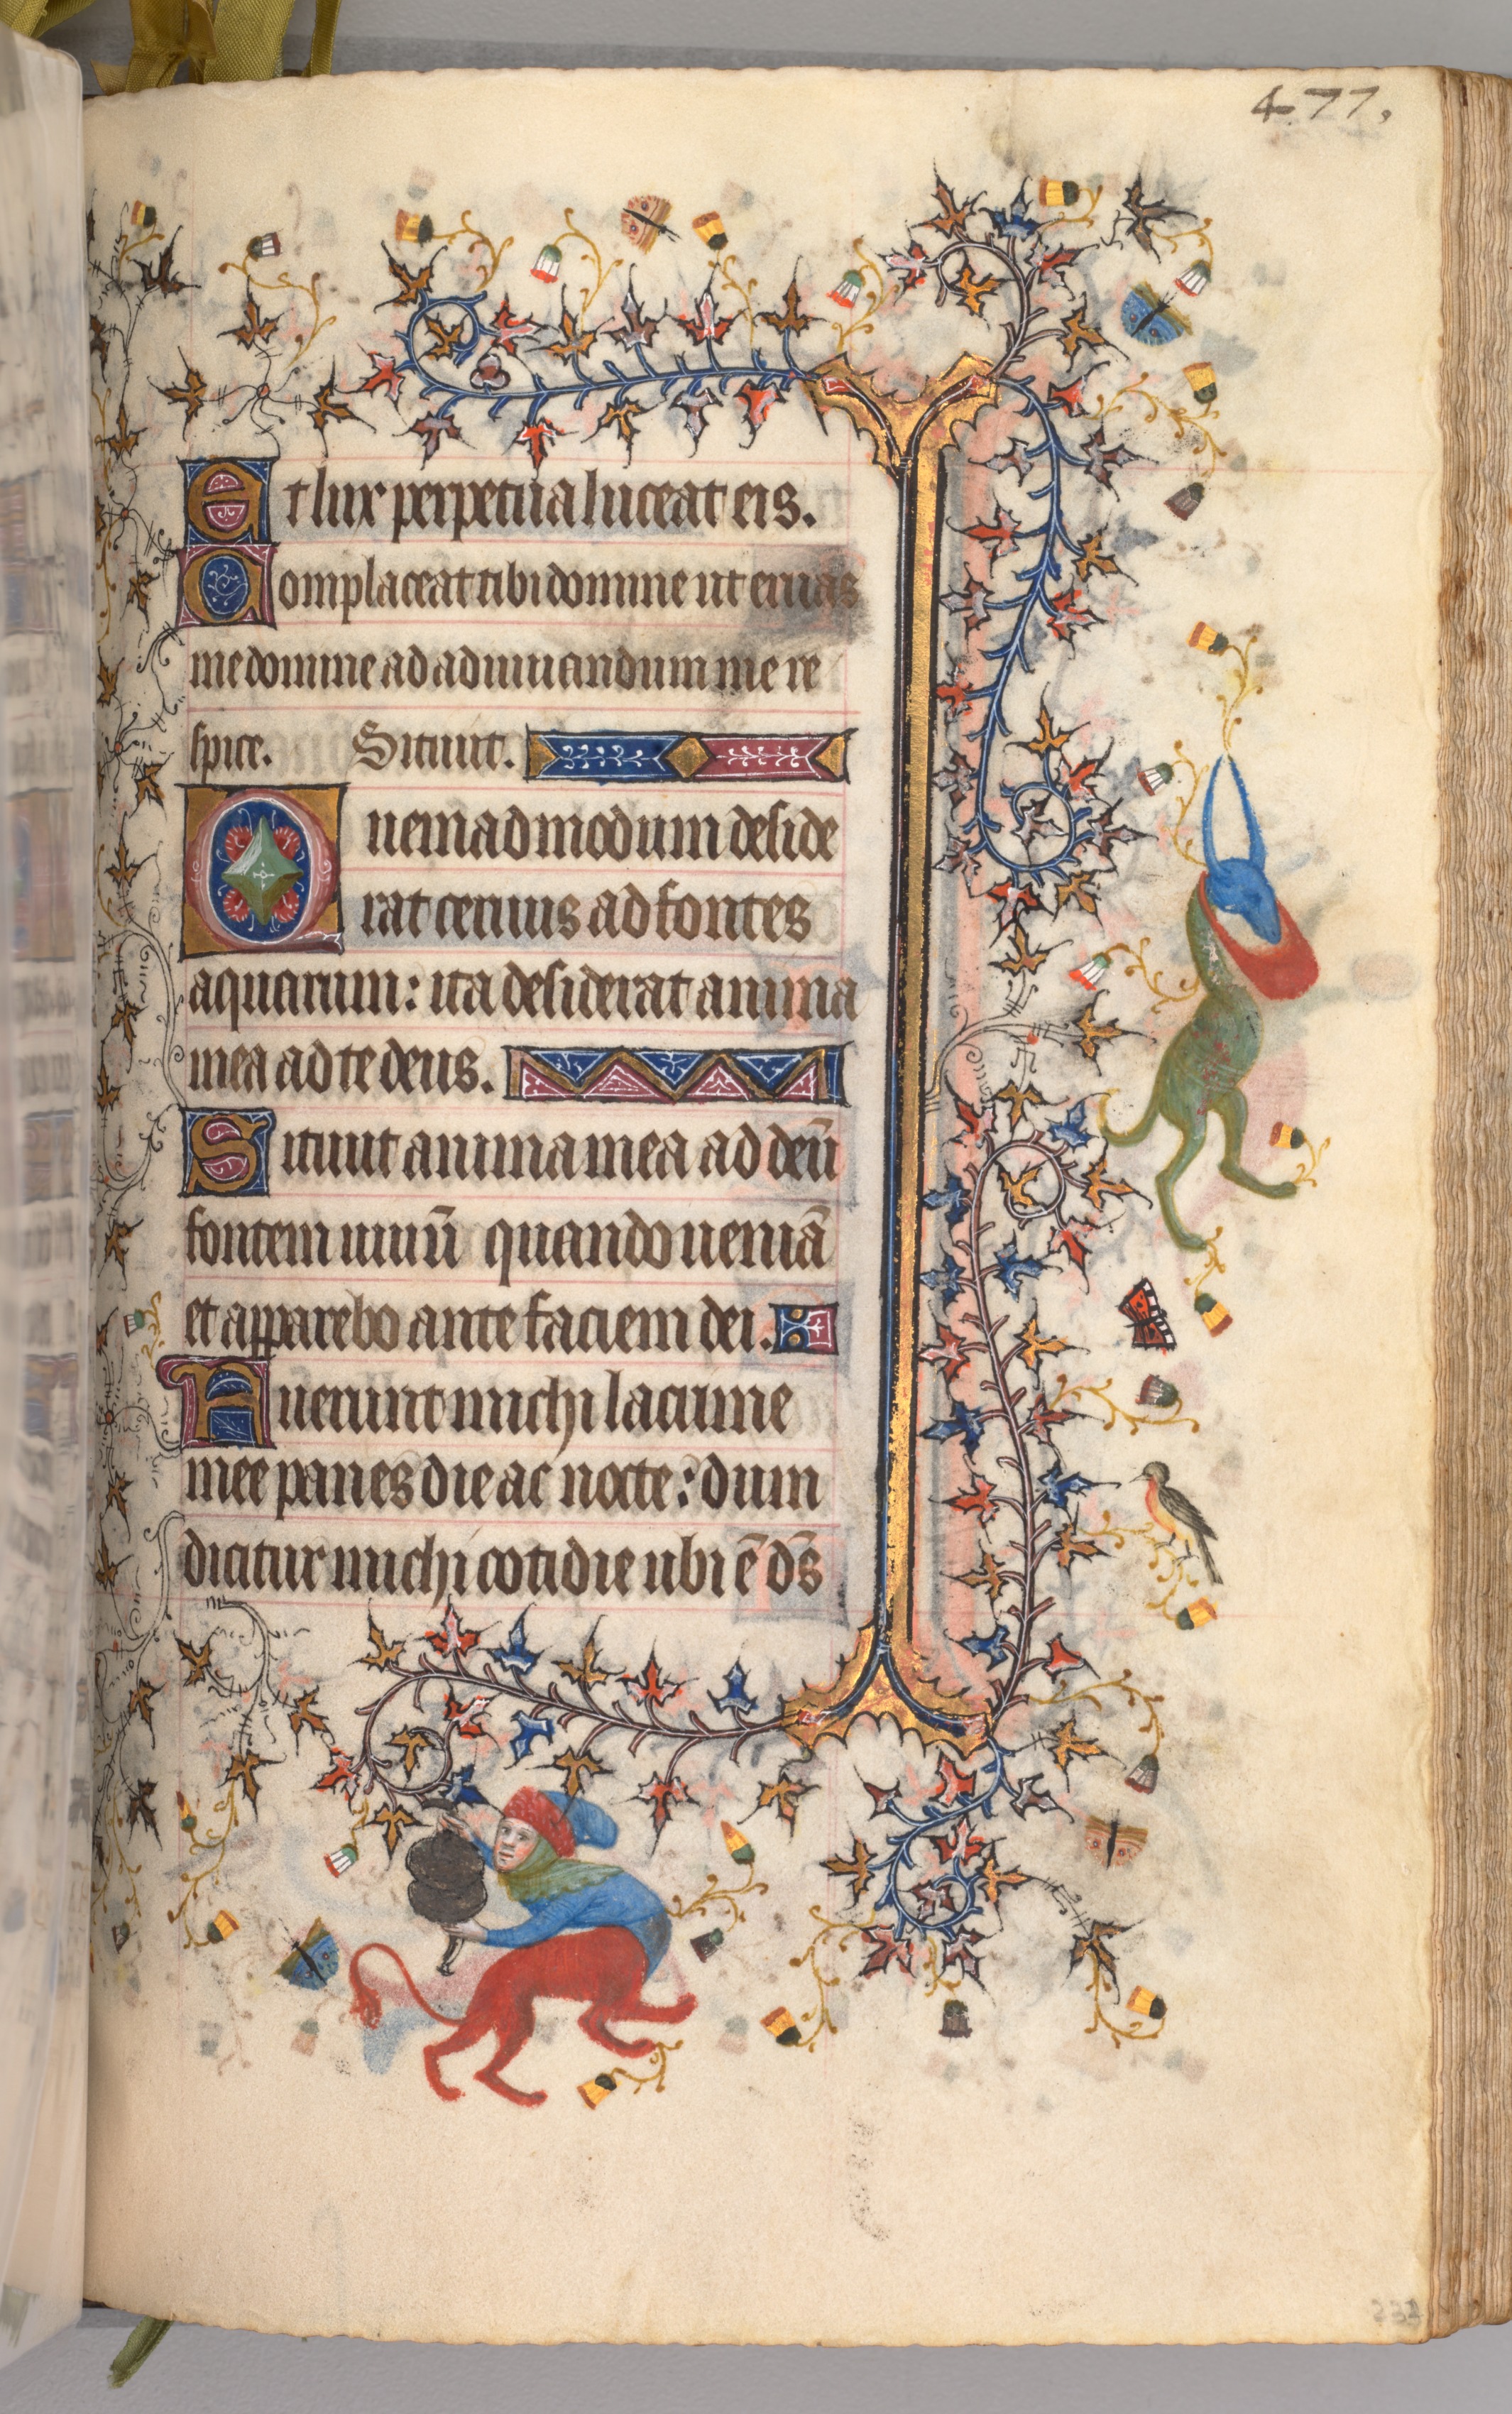 477.
Et lux perpetua luceat eis.
Complaceat tibi domine ut eruas
me domine ad adiuuandum me re
spice. Sitiuit.
Quemadmodum deside
rat ceruus ad fontes
aquarum: ita desiderat anima
mea ad te deus.
Sitiuit anima mea ad deū
fontem uiuū quando ueniā
et apparebo ante faciem dei.
Fuerunt michi lacrime
mee panes die ac nocte: dum
dicitur michi cotidie ubi ē ds̄